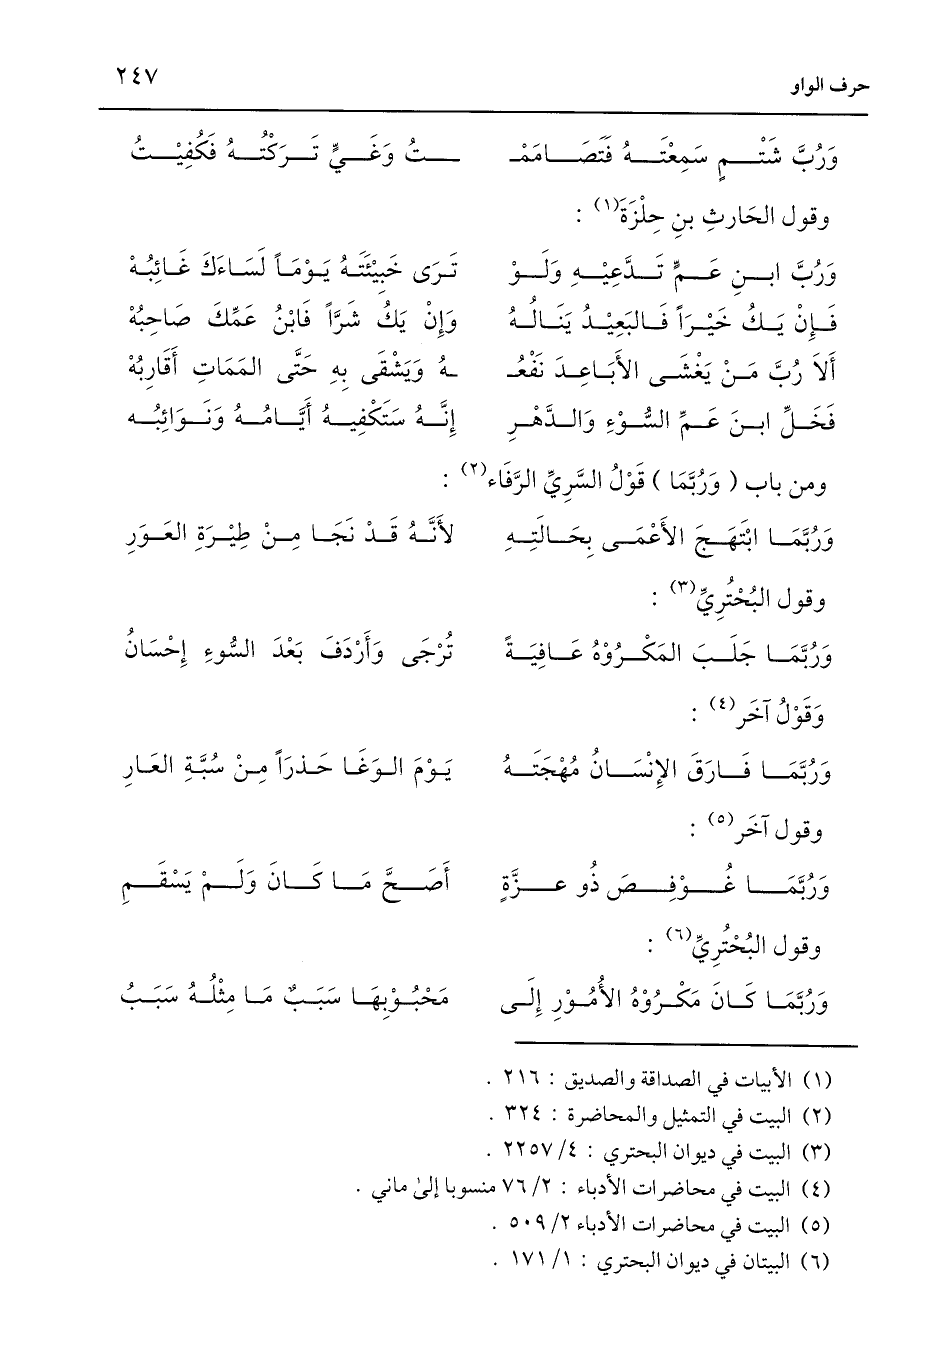 حرف الواو ٢٤٧
وَرُبَّ شَتْمٍ سَمِعْتَهُ فَتَصَامَمْـ ـتُ وَغَيٍّ تَرَكْتُهُ فَكُفِيْتُ
وقول الحَارثِ بنِ حِلْزَةَ(١) :
وَرُبَّ ابنِ عَمٍّ تَدَّعِيْهِ وَلَوْ تَرَى خَبِيْئَتَهُ يَوْمَاً لَسَاءَكَ غَائِبُهْ
فَإِنْ يَكُ خَيْرَاً فَالبَعِيْدُ يَنَالُهُ وَإِنْ يَكُ شَرَّاً فَابْنُ عَمِّكَ صَاحِبُهْ
أَلاَ رُبَّ مَنْ يَغْشَى الأَبَاعِدَ نَفْعُـ ـهُ وَيَشْقَى بِهِ حَتَّى المَمَاتِ أَقَارِبُهْ
فَخَلِّ ابنَ عَمِّ السُّوْءِ وَالدَّهْرِ إِنَّهُ سَتَكْفِيهُ أَيَّامُهُ وَنَوَائِبُه
ومن باب ( وَرُبَّمَا ) قَوْلُ السَّرِيِّ الرَّفَاءِ(٢) :
وَرُبَّمَا ابْتَهَجَ الأَعْمَى بِحَالَتِهِ لأَنَّهُ قَدْ نَجَا مِنْ طِيْرَةِ العَوَرِ
وقول البُحْتُرِيِّ(٣) :
وَرُبَّمَا جَلَبَ المَكْرُوْهُ عَافِيَةً تُرْجَى وَأَرْدَفَ بَعْدَ السُّوءِ إِحْسَانُ
وَقَوْلُ آخَر(٤) :
وَرُبَّمَا فَارَقَ الإِنْسَانُ مُهْجَتَهُ يَوْمَ الوَغَا حَذرَاً مِنْ سُبَّةِ العَارِ
وقول آخَر(٥) :
وَرُبَّمَا غُوْفِصَ ذُو عِزَّةٍ أَصَحَّ مَا كَانَ وَلَمْ يَسْقَمِ
وقول البُحْتُرِيِّ(٦) :
وَرُبَّمَا كَانَ مَكْرُوْهُ الأُمُوْرِ إِلَى مَحْبُوْبِهَا سَبَبٌ مَا مِثْلُهُ سَبَبُ
(١) الأبيات في الصداقة والصديق : ٢١٦ .
(٢) البيت في التمثيل والمحاضرة : ٣٢٤ .
(٣) البيت في ديوان البحتري : ٤/ ٢٢٥٧ .
(٤) البيت في محاضرات الأدباء : ٢/ ٧٦ منسوبا إلىٰ ماني .
(٥) البيت في محاضرات الأدباء ٢/ ٥٠٩ .
(٦) البيتان في ديوان البحتري : ١/ ١٧١ .